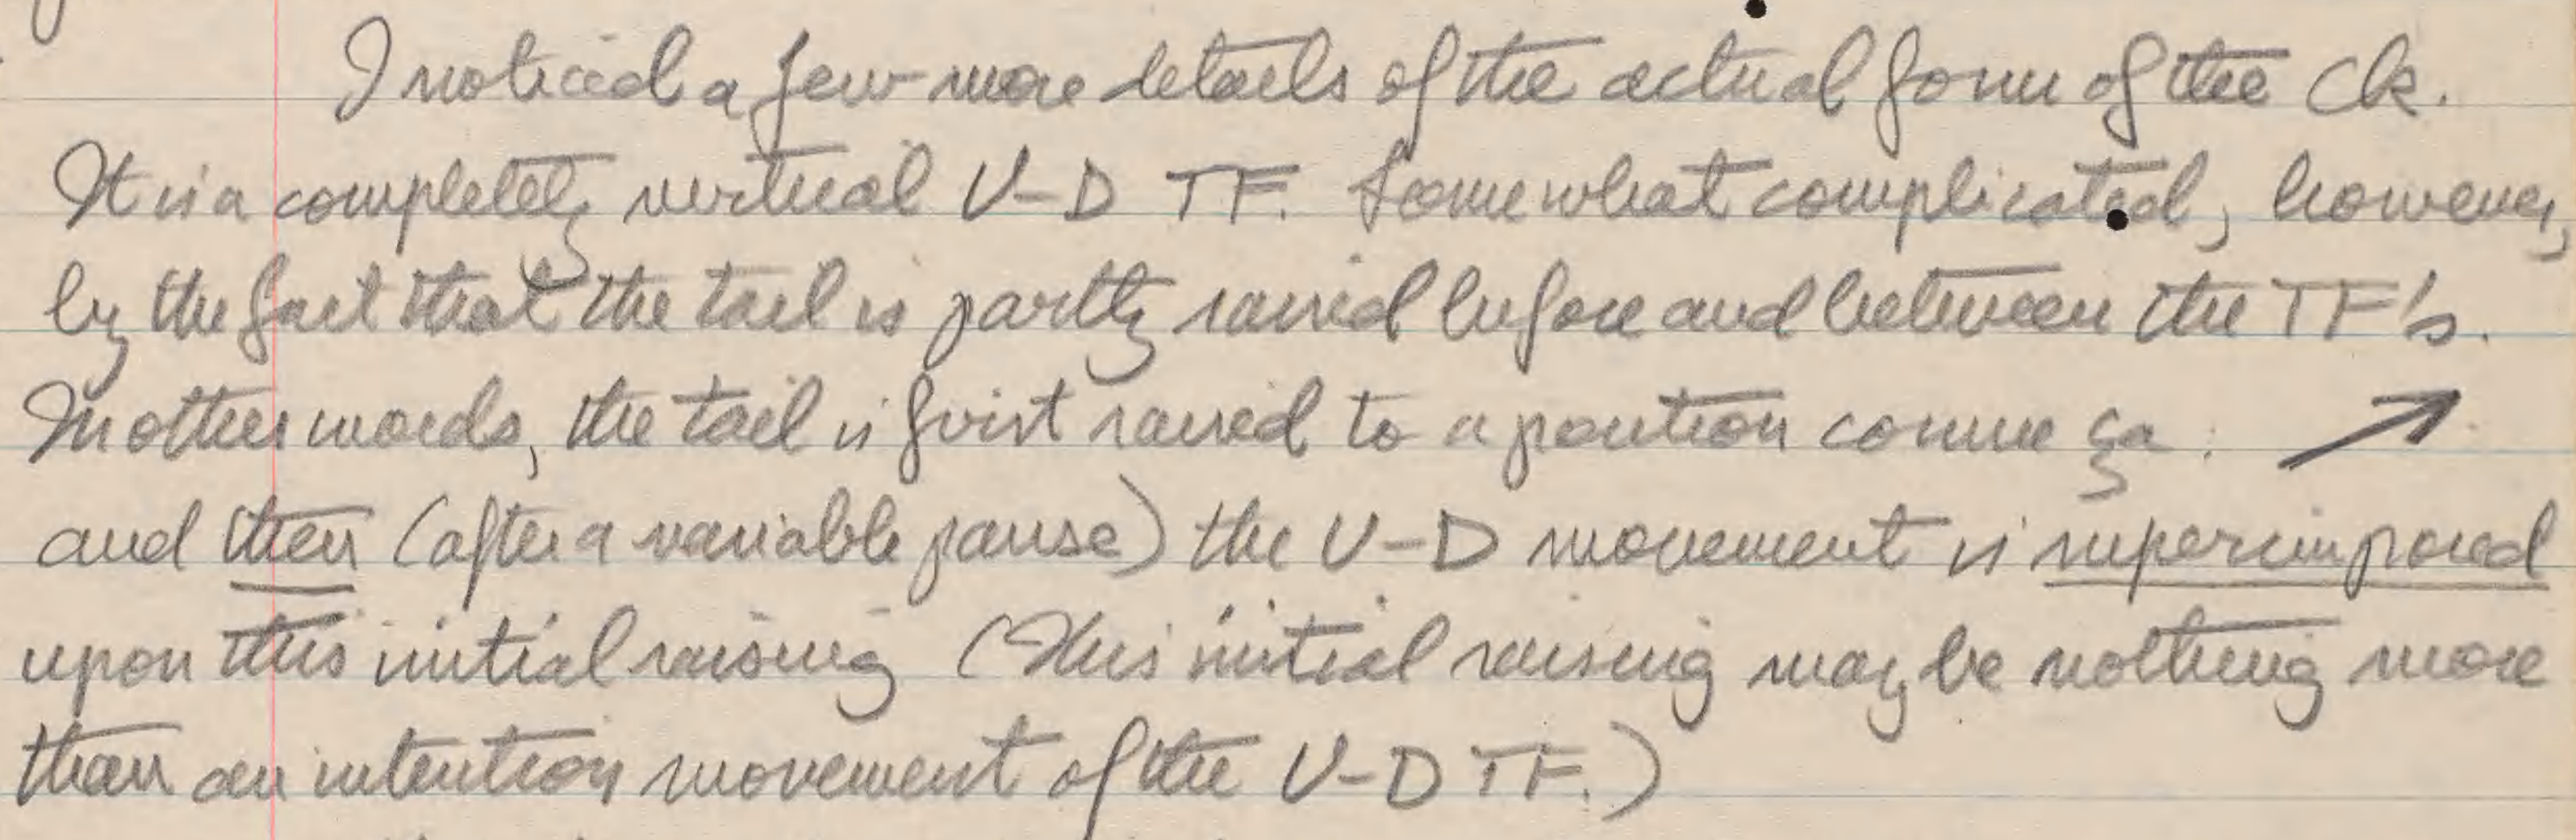 I noticed a few more details of the actual form of the Ck.
It is a completely vertical V-D TF. Somewhat complicated, however,
by the fact that the tail is partly raised before and between the TF's.
In other words, the tail is first raised to a position comme ça :
and then (after a variable pause) the V-D movement is superimposed
upon this initial raising (This initial raising may be nothing more
than an intention movement of the V-D TF.)